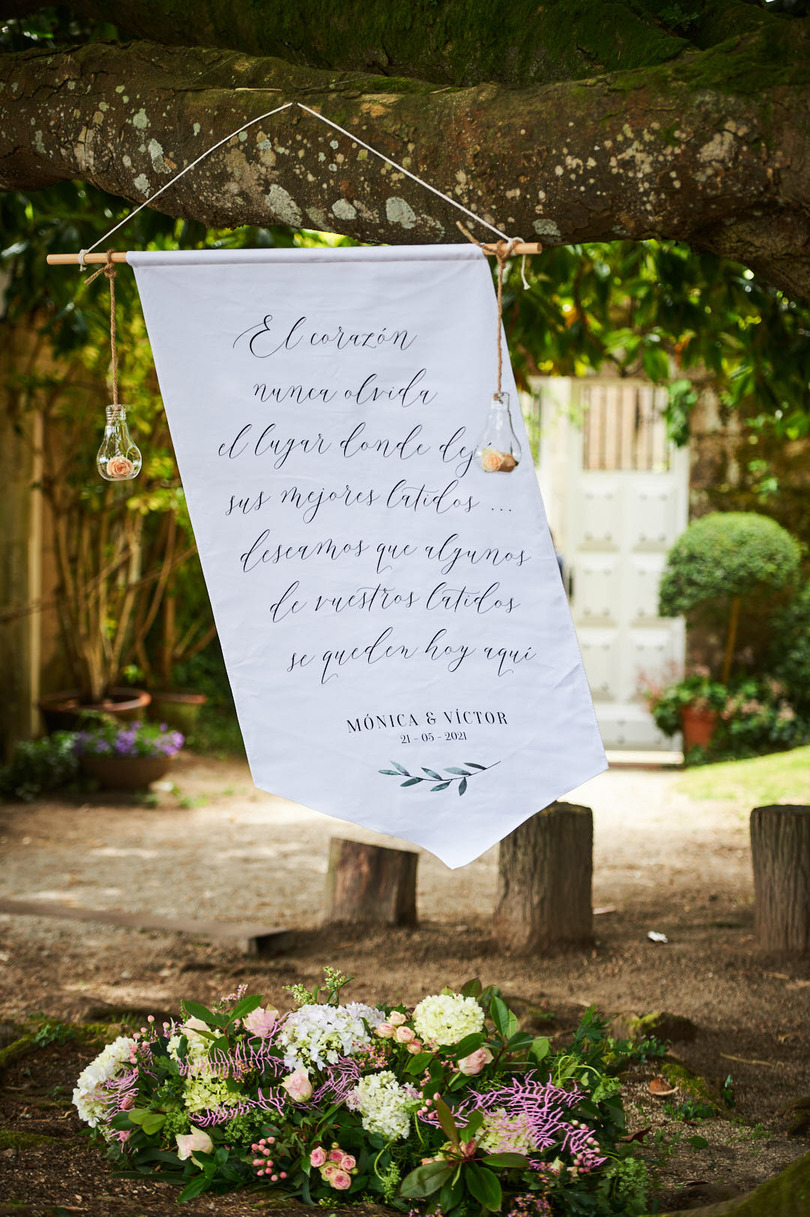 El corazón
nunca olvida
el lugar donde
sus mejores latidos ...
deseamos que algunos
de vuestros latidos
se queden hoy aquí
MÓNICA & VÍCTOR
21 - 05 - 2021